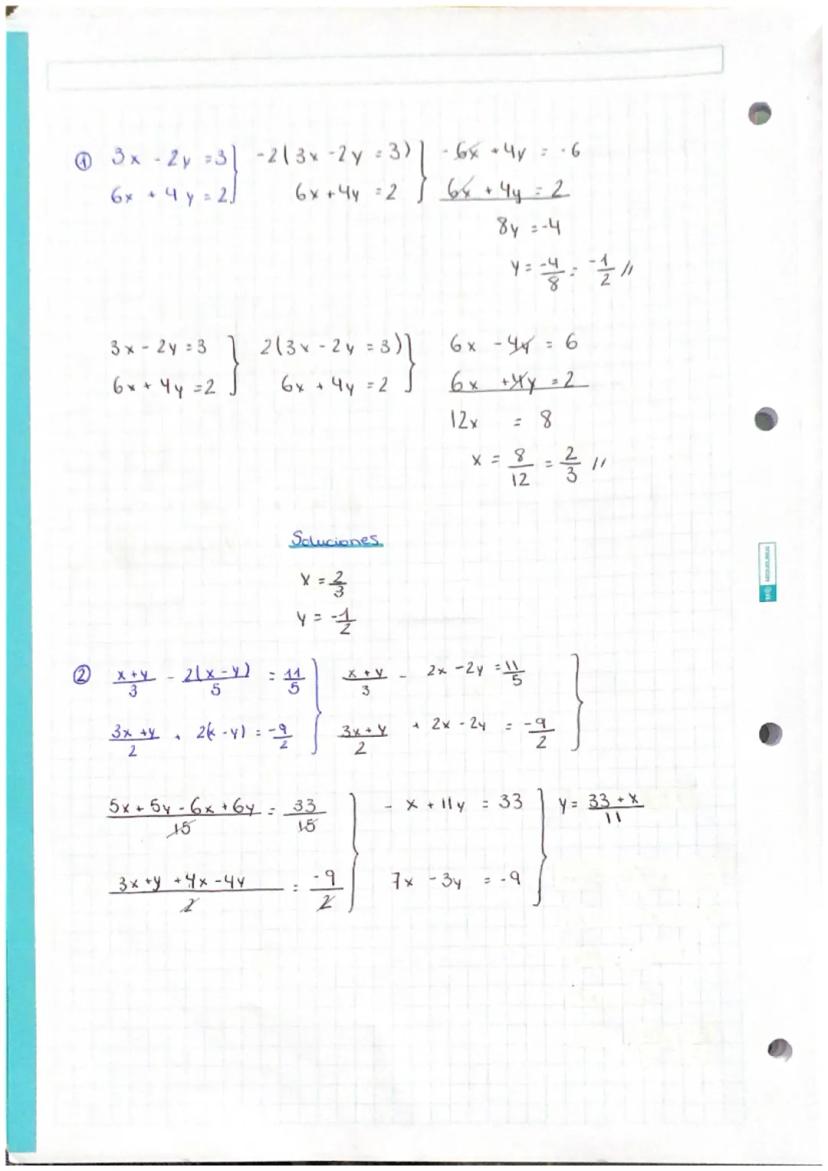 ① 3x - 2y = 3 } -2(3x - 2y = 3) } - 6x + 4y = -6
6x + 4y = 2 6x + 4y = 2 6x + 4y = 2
8y = -4
y = -4/8 = -1/2 //
3x - 2y = 3 } 2(3x - 2y = 3) } 6x - 4y = 6
6x + 4y = 2 6x + 4y = 2 6x + 4y = 2
12x = 8
x = 8/12 = 2/3 //
Soluciones
x = 2/3
y = -1/2
② x+y/3 - 2(x-y)/5 = 11/5 } x+y/3 - 2x - 2y = 11/5 }
3x+y/2 + 2(x-y) = -9/2 3x+y/2 + 2x - 2y = -9/2
5x + 5y - 6x + 6y/15 = 33/15 } - x + 11y = 33 } y = 33+x/11
3x + y + 4x - 4y/2 = -9/2 7x - 3y = -9